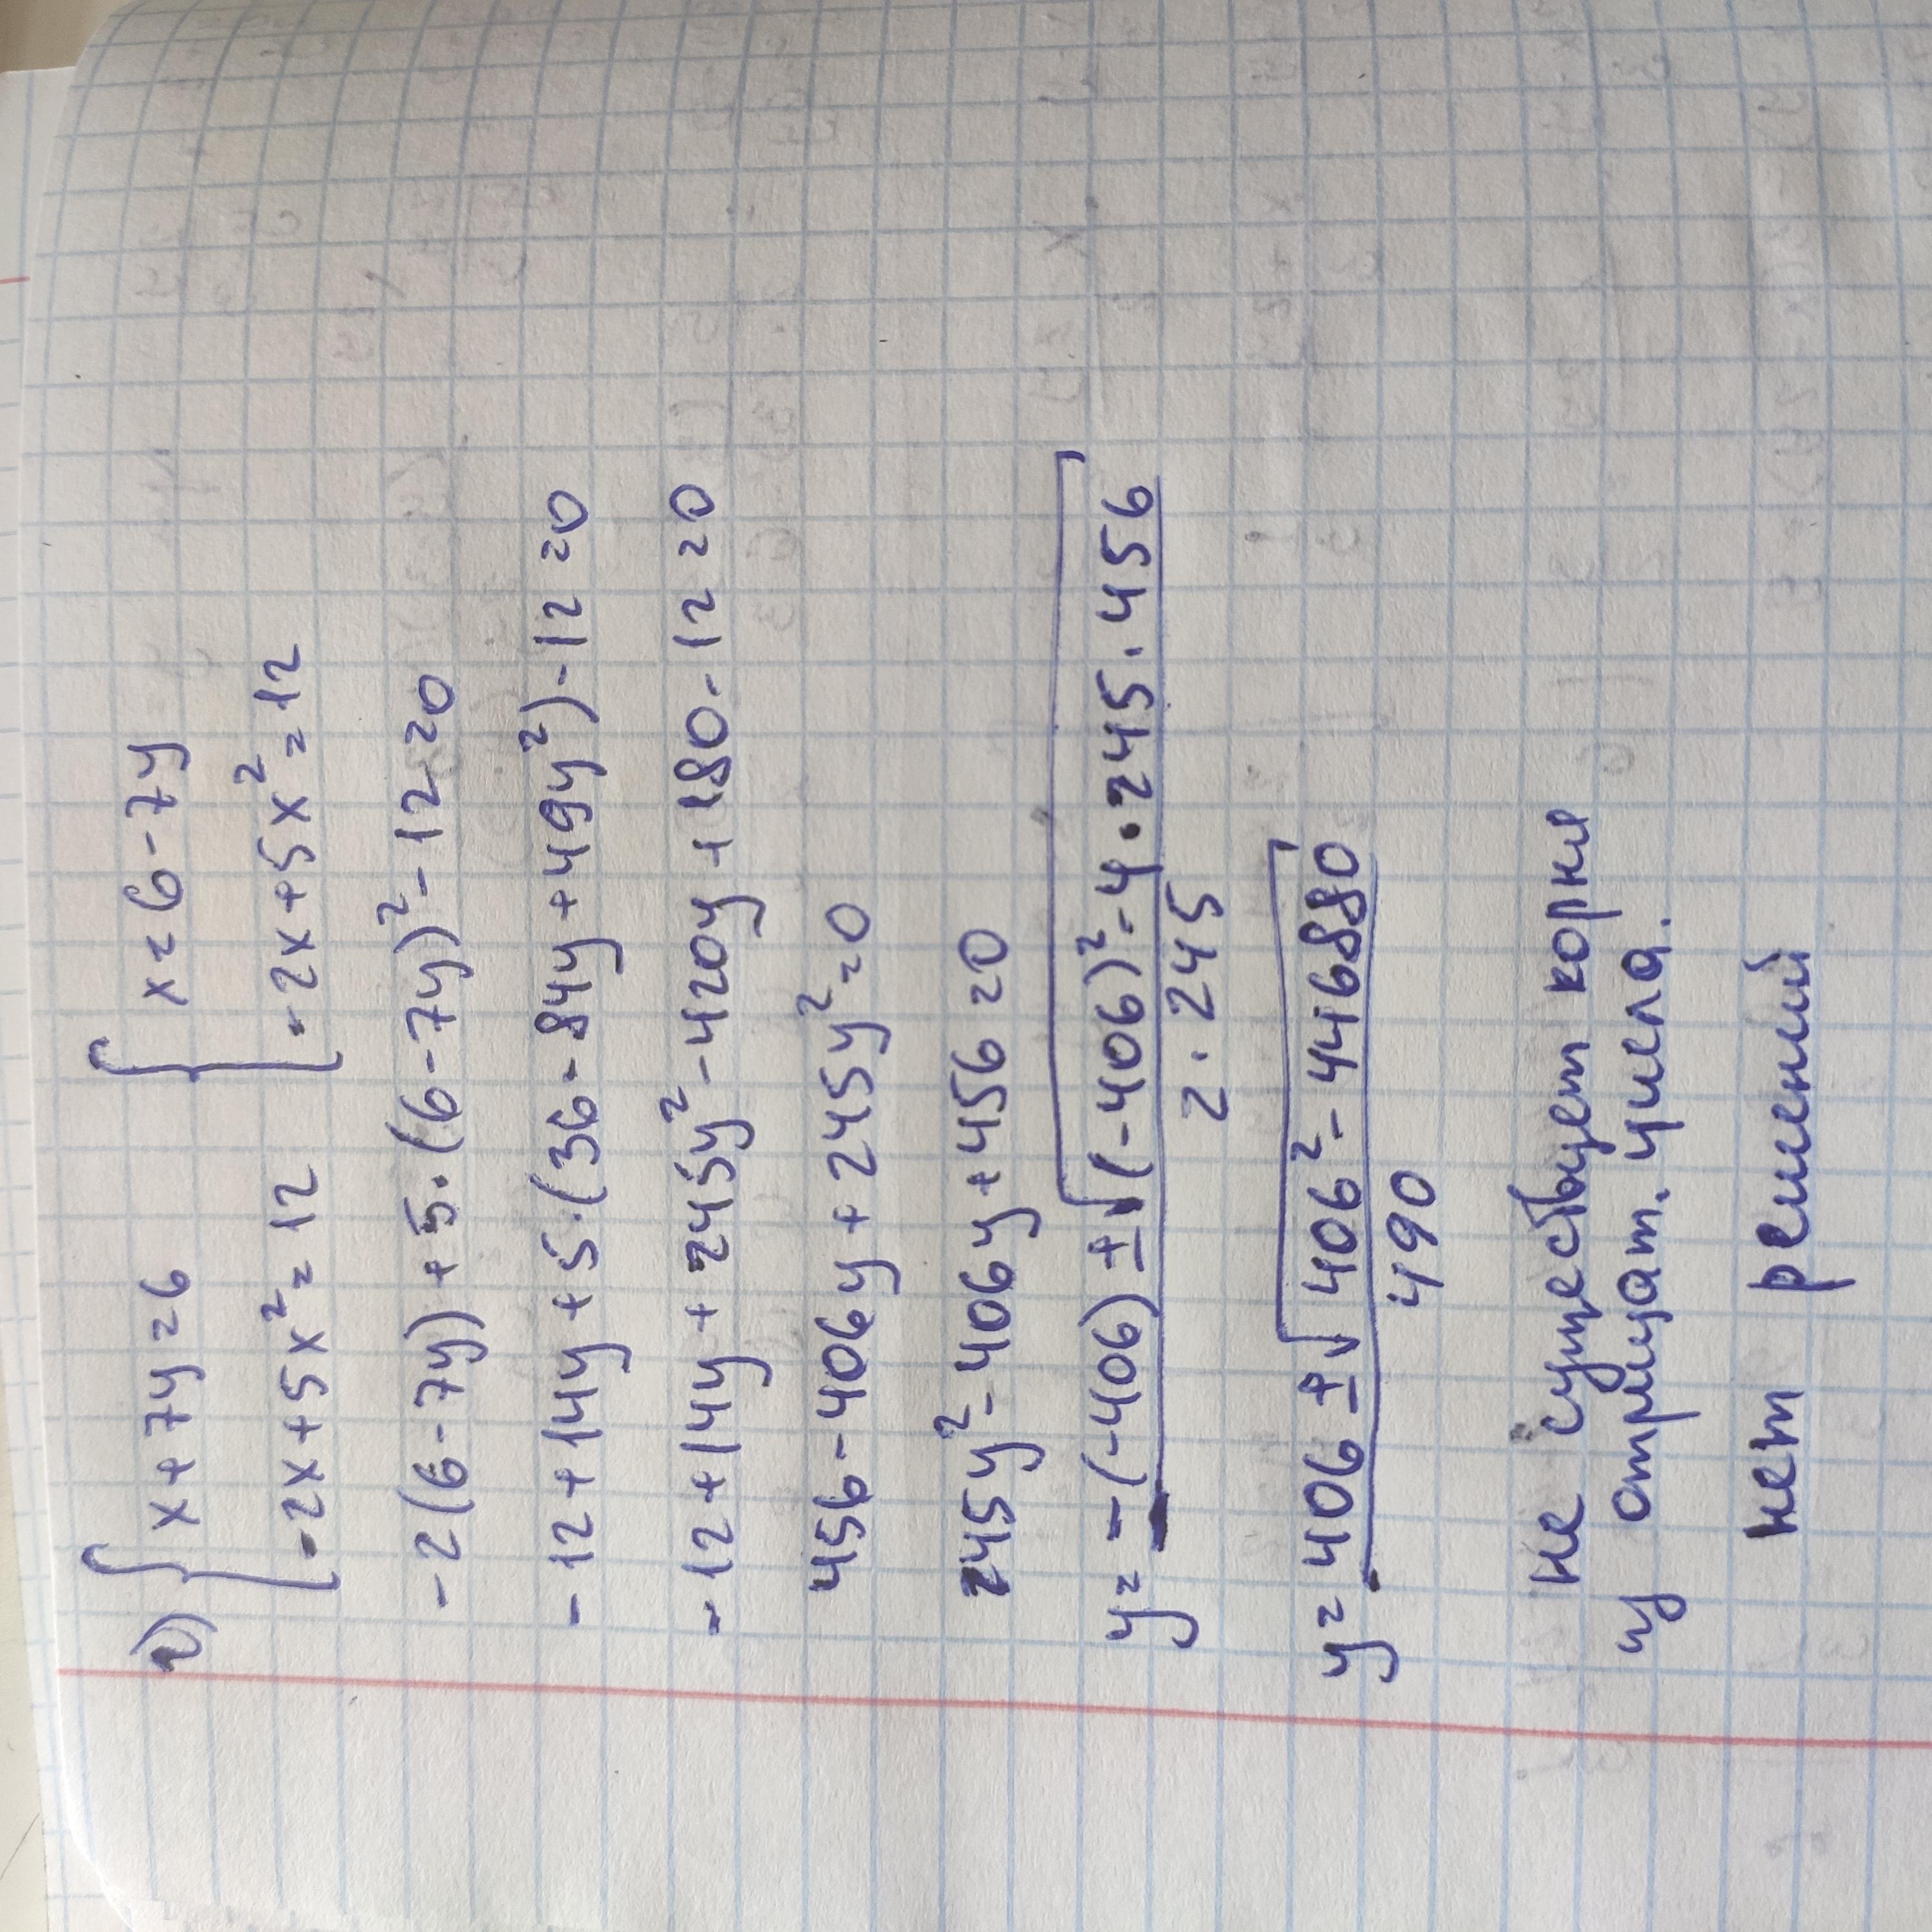 в) { x + 7y = 6 { x = 6 - 7y
-2x + 5x² = 12 -2x + 5x² = 12
-2(6 - 7y) + 5·(6 - 7y)² - 12 = 0
-12 + 14y + 5·(36 - 84y + 49y²) - 12 = 0
-12 + 14y + 245y² - 420y + 180 - 12 = 0
456 - 406y + 245y² = 0
245y² - 406y + 456 = 0
y = -(-406) ± √(-406)² - 4·245·456
2·245
y = 406 ± √406² - 446880
490
не существует корня
у отрицат. числа.
нет решений